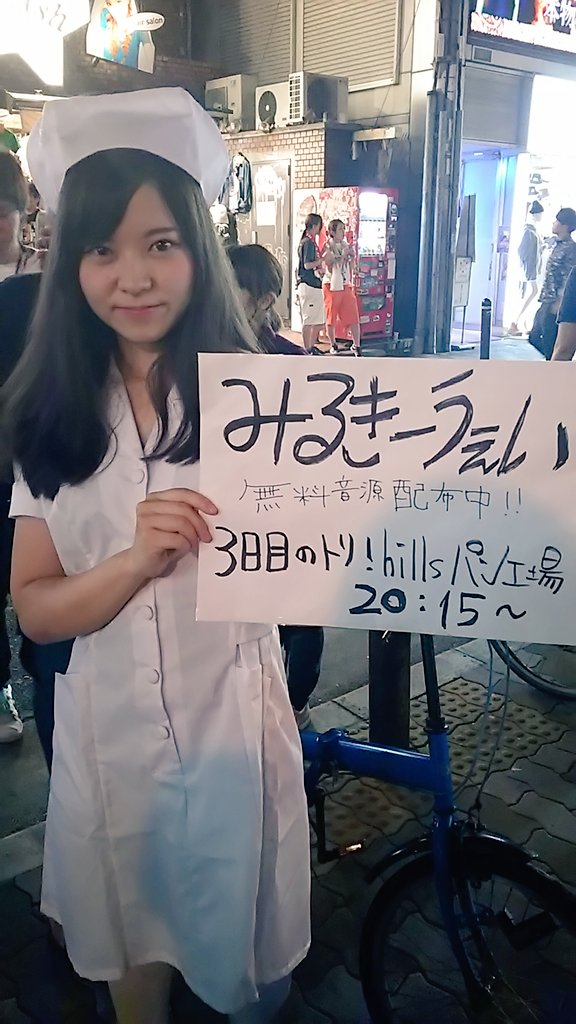 salon
みるきーうぇい
無料音源配布中!!
3日目のトリ!hillsパン工場
20:15~